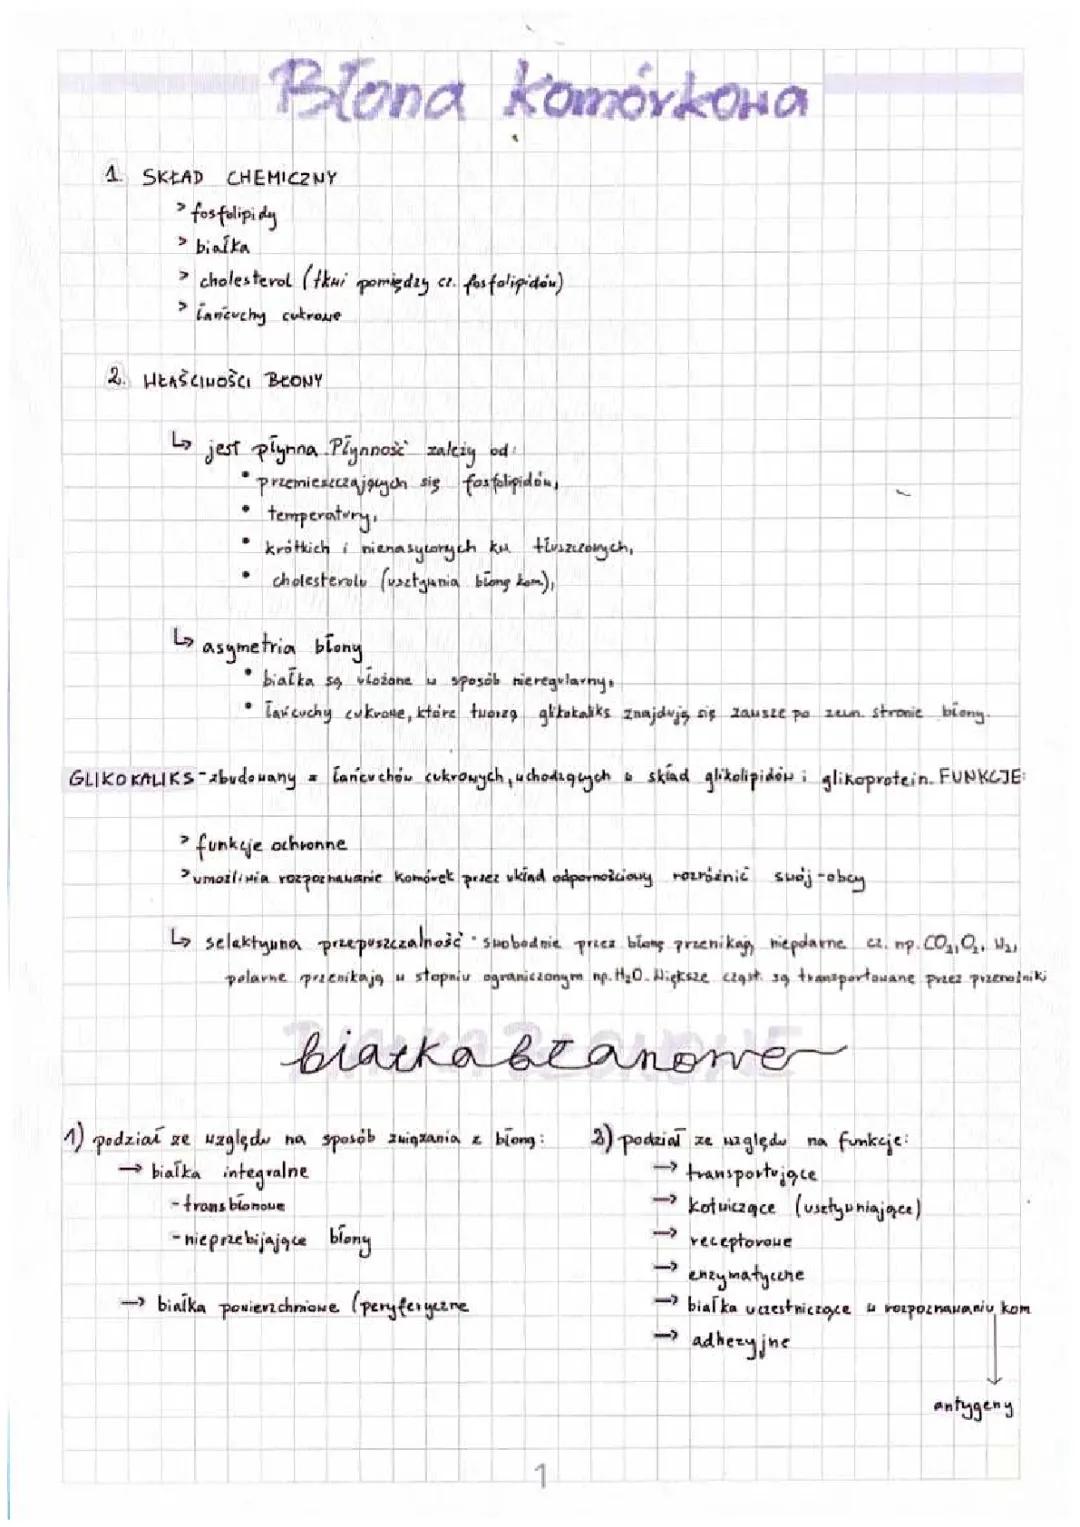 Błona komórkowa
1. SKŁAD CHEMICZNY
> fosfolipidy
> białka
> cholesterol (tkwi pomiędzy cz. fosfolipidów)
> łańcuchy cukrowe
2. WŁAŚCIWOŚCI BŁONY
↳ jest płynna. Płynność zależy od:
• przemieszczających się fosfolipidów,
• temperatury,
• krótkich i nienasyconych kw tłuszczowych,
• cholesterolu (usztywnia błonę kom),
↳ asymetria błony
• białka są ułożone w sposób nieregularny,
• łańcuchy cukrowe, które tworzą glikokaliks znajdują się zawsze po zewn. stronie błony.
GLIKOKALIKS - zbudowany z łańcuchów cukrowych, wchodzących w skład glikolipidów i glikoprotein. FUNKCJE:
> funkcje ochronne
> umożliwia rozpoznawanie komórek przez układ odpornościowy rozróżnić swój-obcy
↳ selektywna przepuszczalność · swobodnie przez błonę przenikają niepolarne cz. np. CO₂, O₂, N₂,
polarne przenikają w stopniu ograniczonym np. H₂O. Większe cząst. są transportowane przez przenośniki
białka błonowe
1) podział ze względu na sposób związania z błoną:
→ białka integralne
- transbłonowe
- nieprzebijające błony
→ białka powierzchniowe (peryferyczne
2) podział ze względu na funkcje:
→ transportujące
→ kotwiczące (usztywniające)
→ receptorowe
→ enzymatyczne
→ białka uczestniczące w rozpoznawaniu kom
→ adhezyjne
antygeny
1